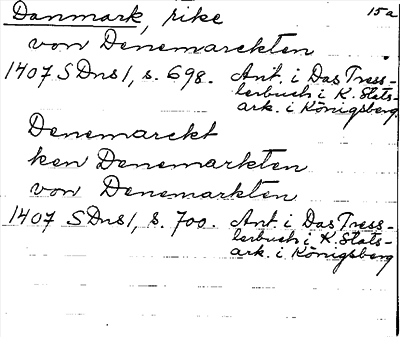 Danmark, rike 15a
von Denemarckten
1407 SDns1, s. 698. Ant. i Das Tress-
lerbuch i K. Stats-
ark. i Königsberg.
Denemarckt
ken Denemarkten
von Denemarkten
1407 SDns1, s. 700. Ant. i Das Tress-
lerbuch i K. Stats-
ark. i Königsberg